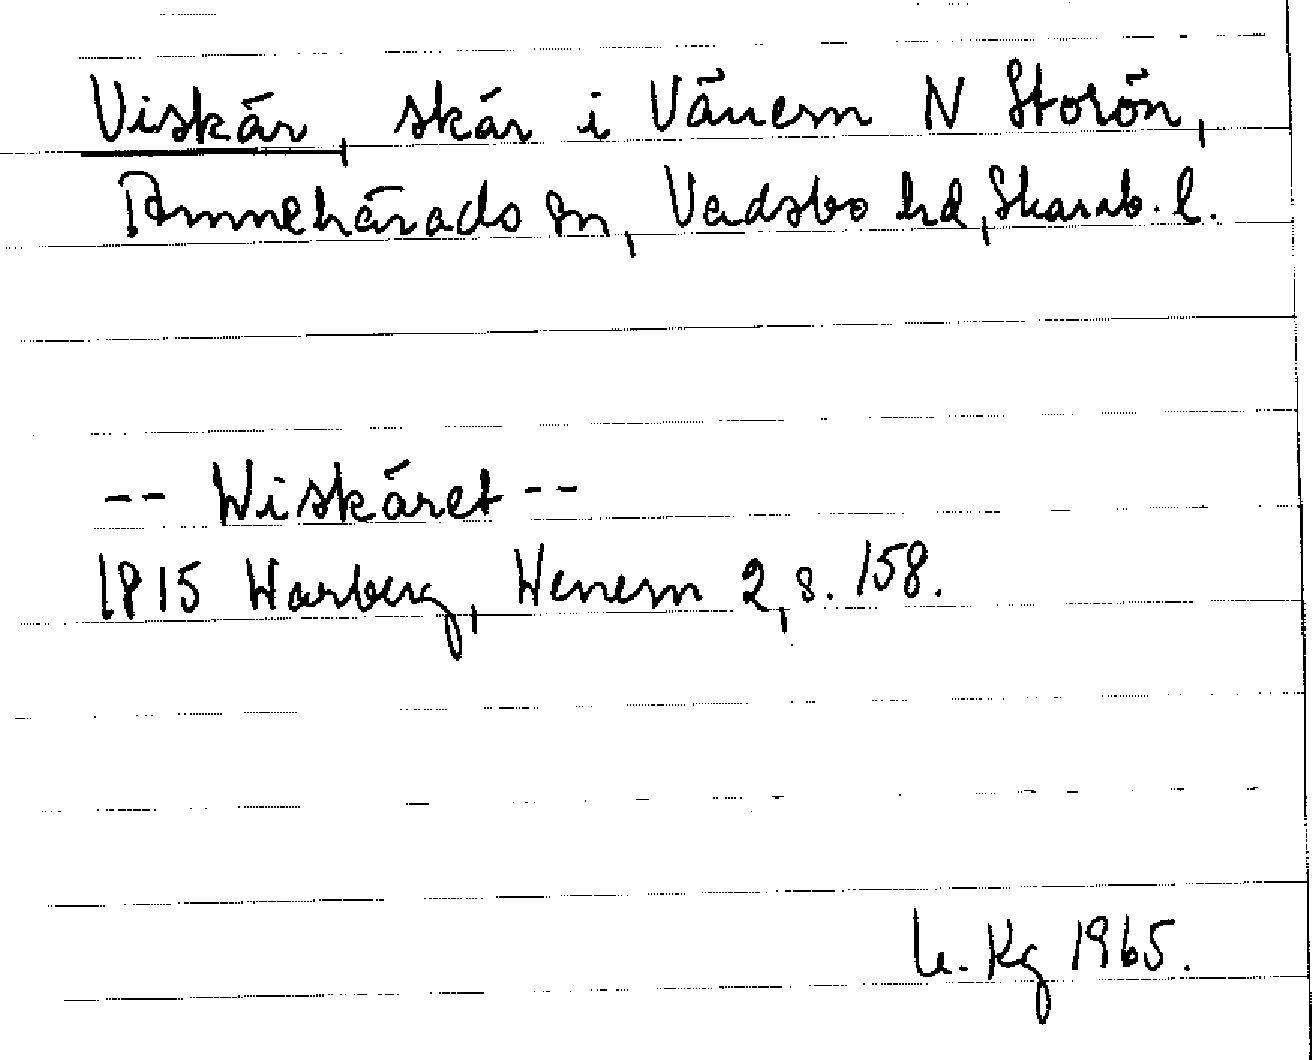 Viskär, skär i Vänern N Storön,
Amnehärads sn, Vadsbo hd, Skarab. l.
-- Wiskäret --
1815 Warberg, Wenern 2, s. 158.
U. Kg 1965.